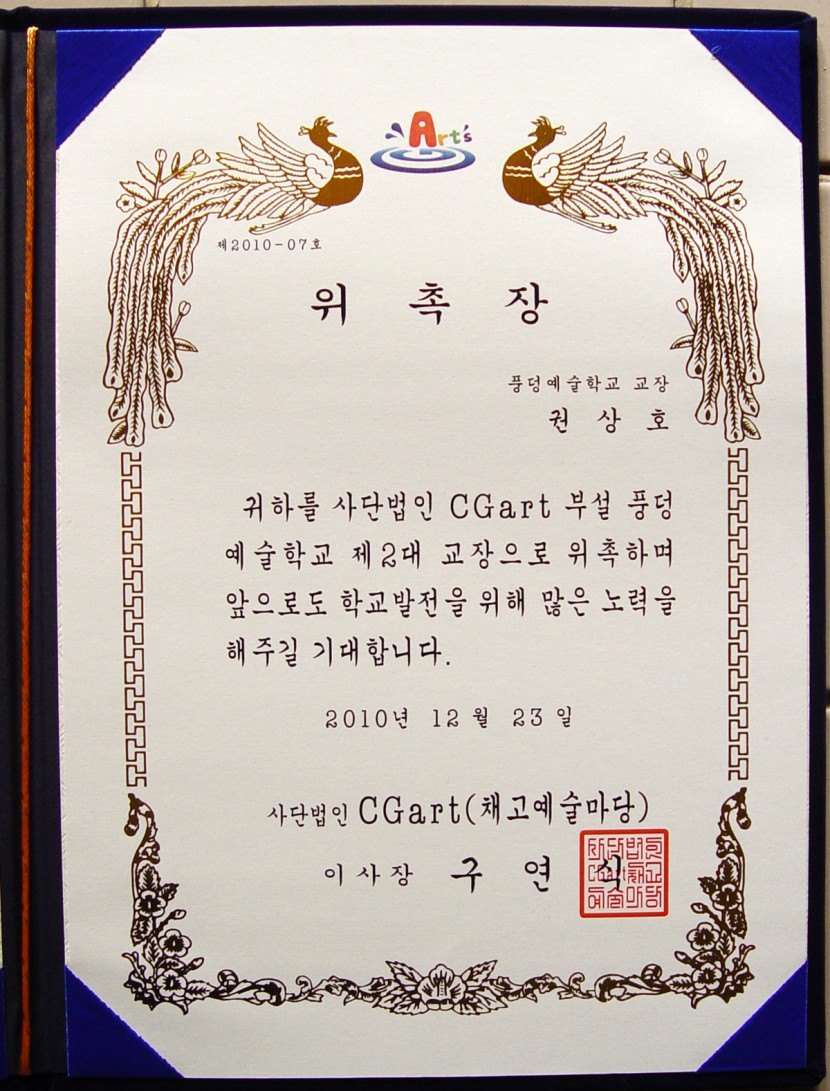 Art's
제2010-07호
위 촉 장
풍덩예술학교 교장
권 상 호
귀하를 사단법인 CGart 부설 풍덩
예술학교 제2대 교장으로 위촉하며
앞으로도 학교발전을 위해 많은 노력을
해주길 기대합니다.
2010년 12월 23일
사단법인 CGart(채고예술마당)
이사장 구 연 식